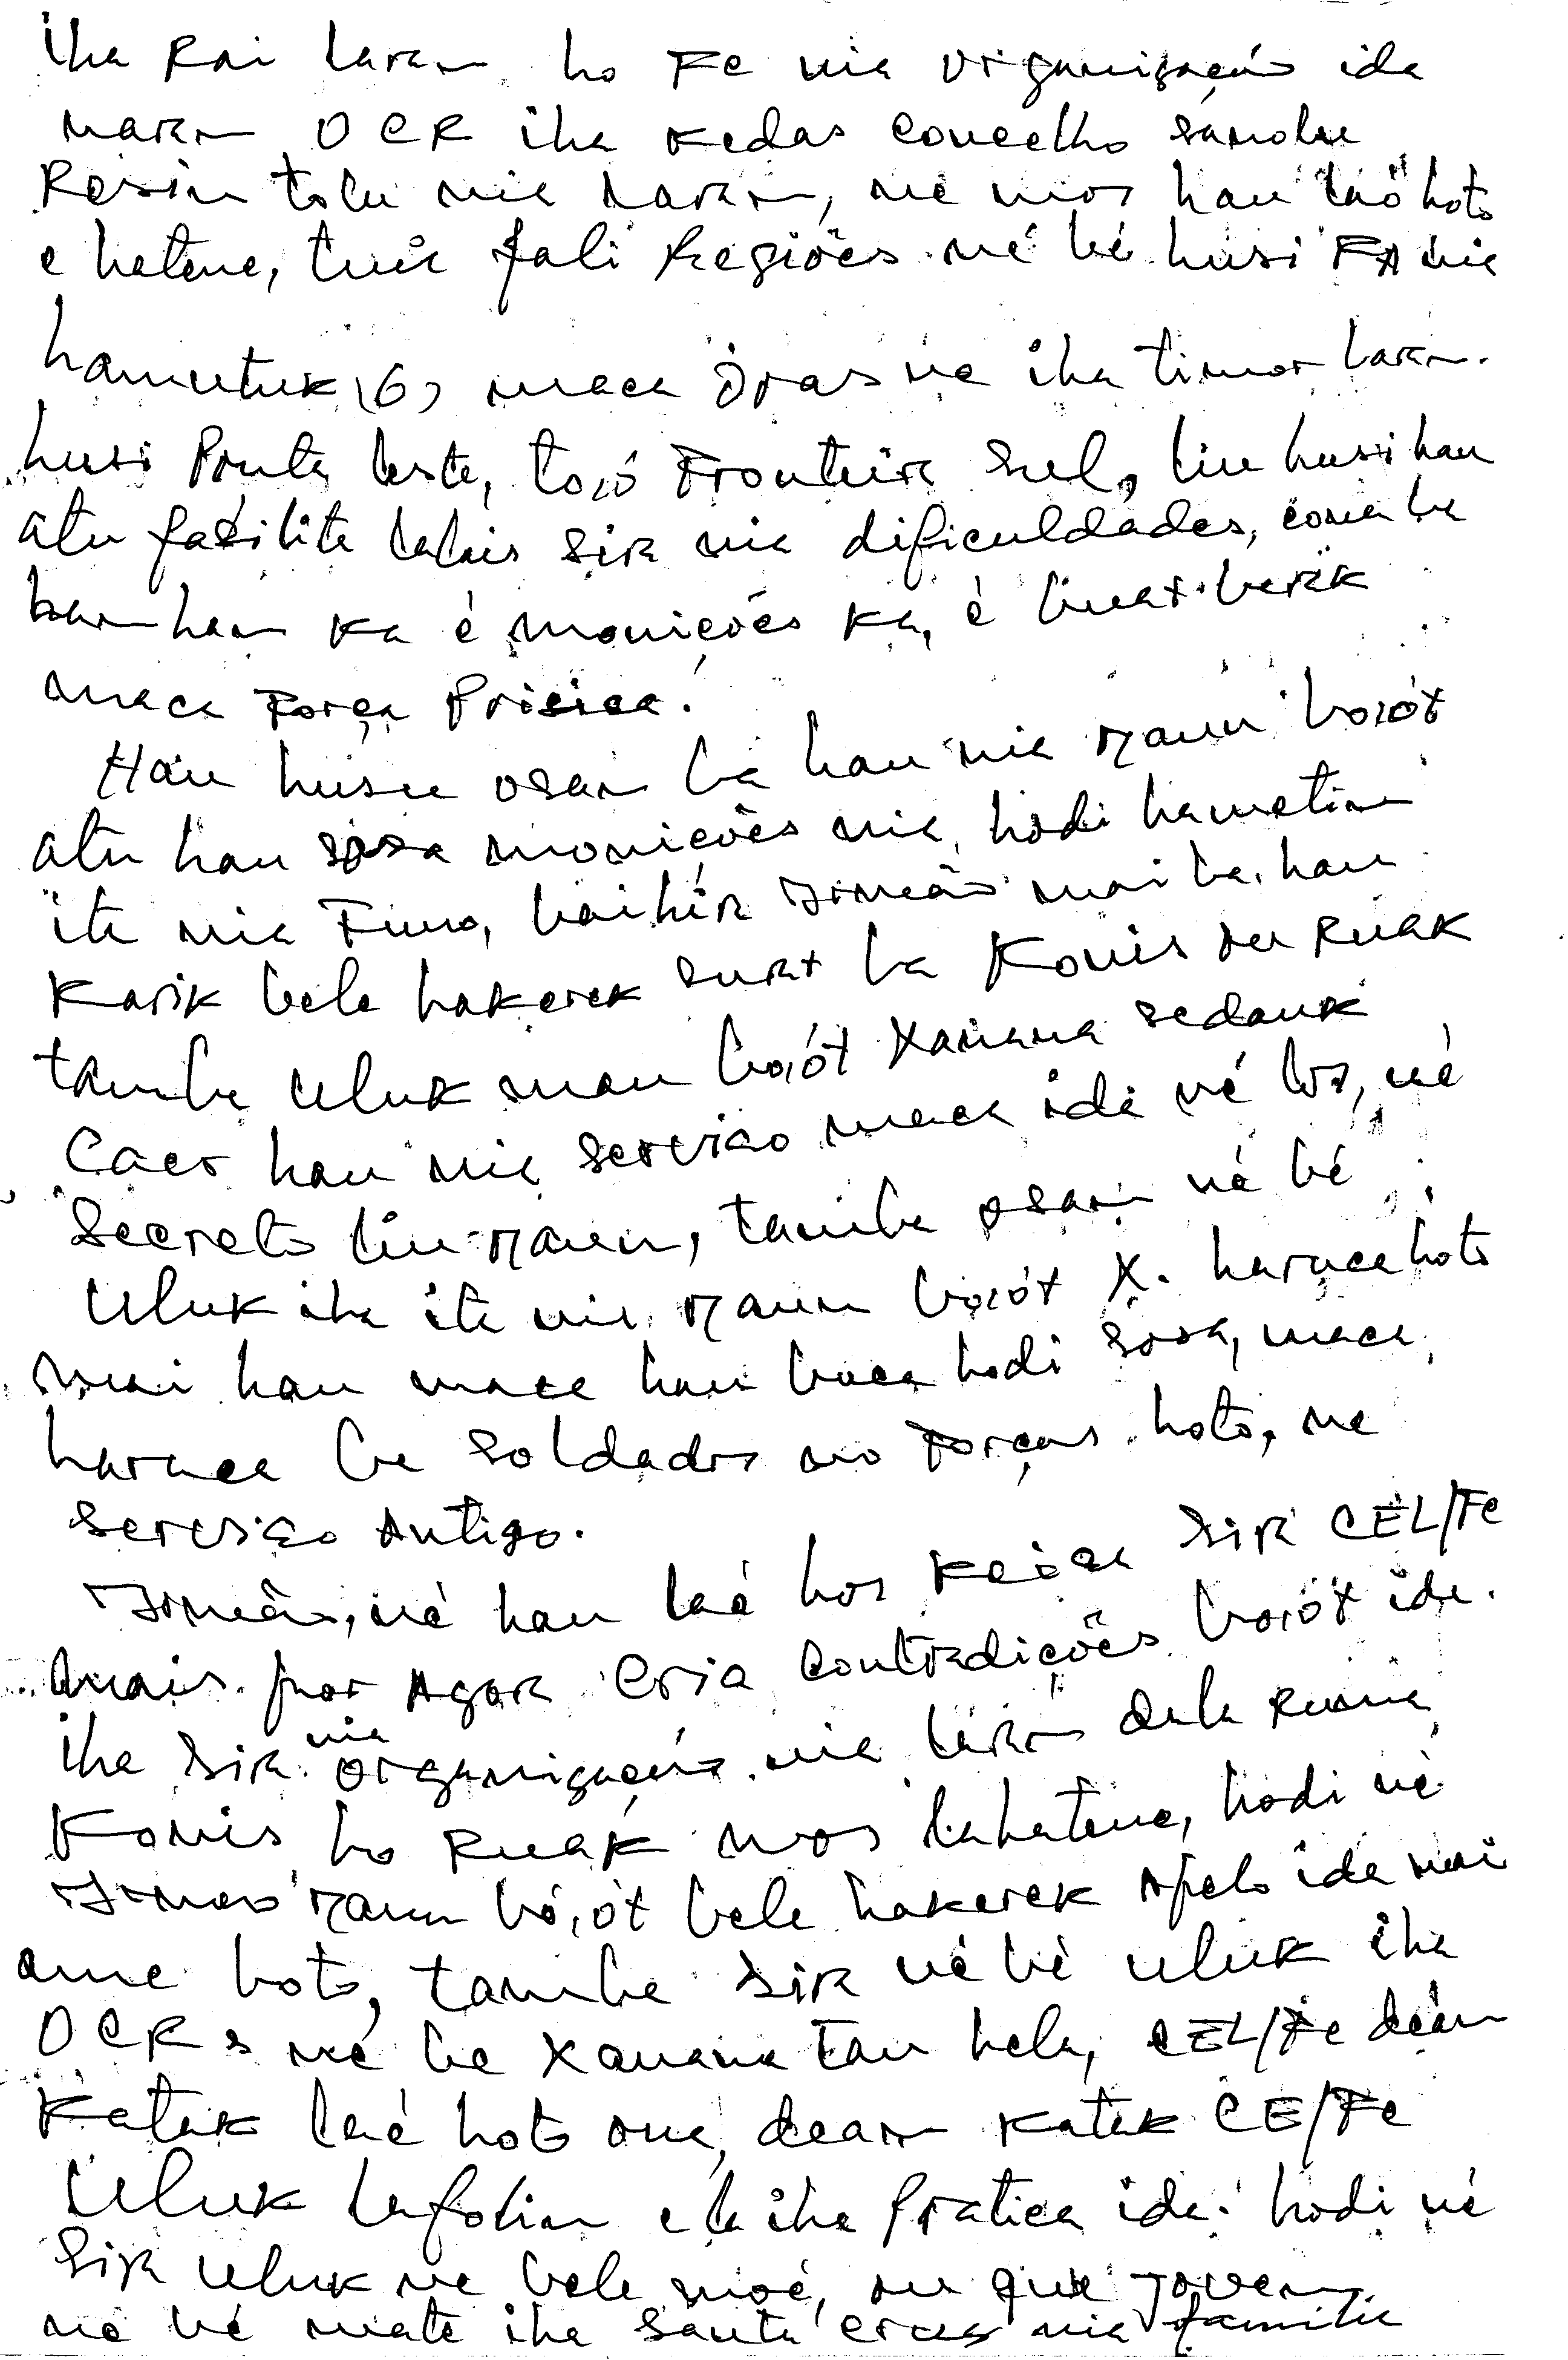 iha Rai laran ho Fe nia organização ida
naran OCR iha kedas concelho sanolu
Resin tolu nia laran, ne mos hau lao hoto
e hatene, tuir fali Regiões né bé husi FA nia
hamutuk (6) maca óras ne iha timor laran.
husi Ponta leste, toió Fronteira Sul, liu husi hau
atu fasilita lalais sira nia dificuldades, cona ba
han han ka é monições ka, é buat barak
maca Força Pricica.
Hau husu osan ba hau nia maun boiót
atu hau sosa monições nia, hodi hametin
ita nia Funo, baihira Irmão mai ba hau
Karik bele hakerek surat ba Konis ou Ruak
tamba uluk maun boiót Xanana sedauk
Caer hau nia serviço maca ida né los, né
Secreto liu maun, tamba osan né bé
Uluk iha ita nia maun boiót X. haruca hoto
mai hau maca hau buca hodi sosa, maca
haruca ba soldados no Forças hoto, ne
serviço Antigo.
Irmão, né hau laé hos keixa sira CEL/Fe
mais por Agora cria contradições boiót ida.
iha sira nia organização nia laran dala ruma
Konis ho Ruak mos lahatene, hodi né
Irmao maun bóiót bele hakerek Apelo ida mai
ame hoto, tamba sira né bé uluk iha
OCR s né be Xanana tau hela, CEL/Fe deán
Katak laé hoto ona, dean katak CE/Fe
Uluk lafolin e la iha Pratica ida. hodi né
Sira uluk ne bele moé, ou que Joven
né bé mate iha santa cruz nia familia